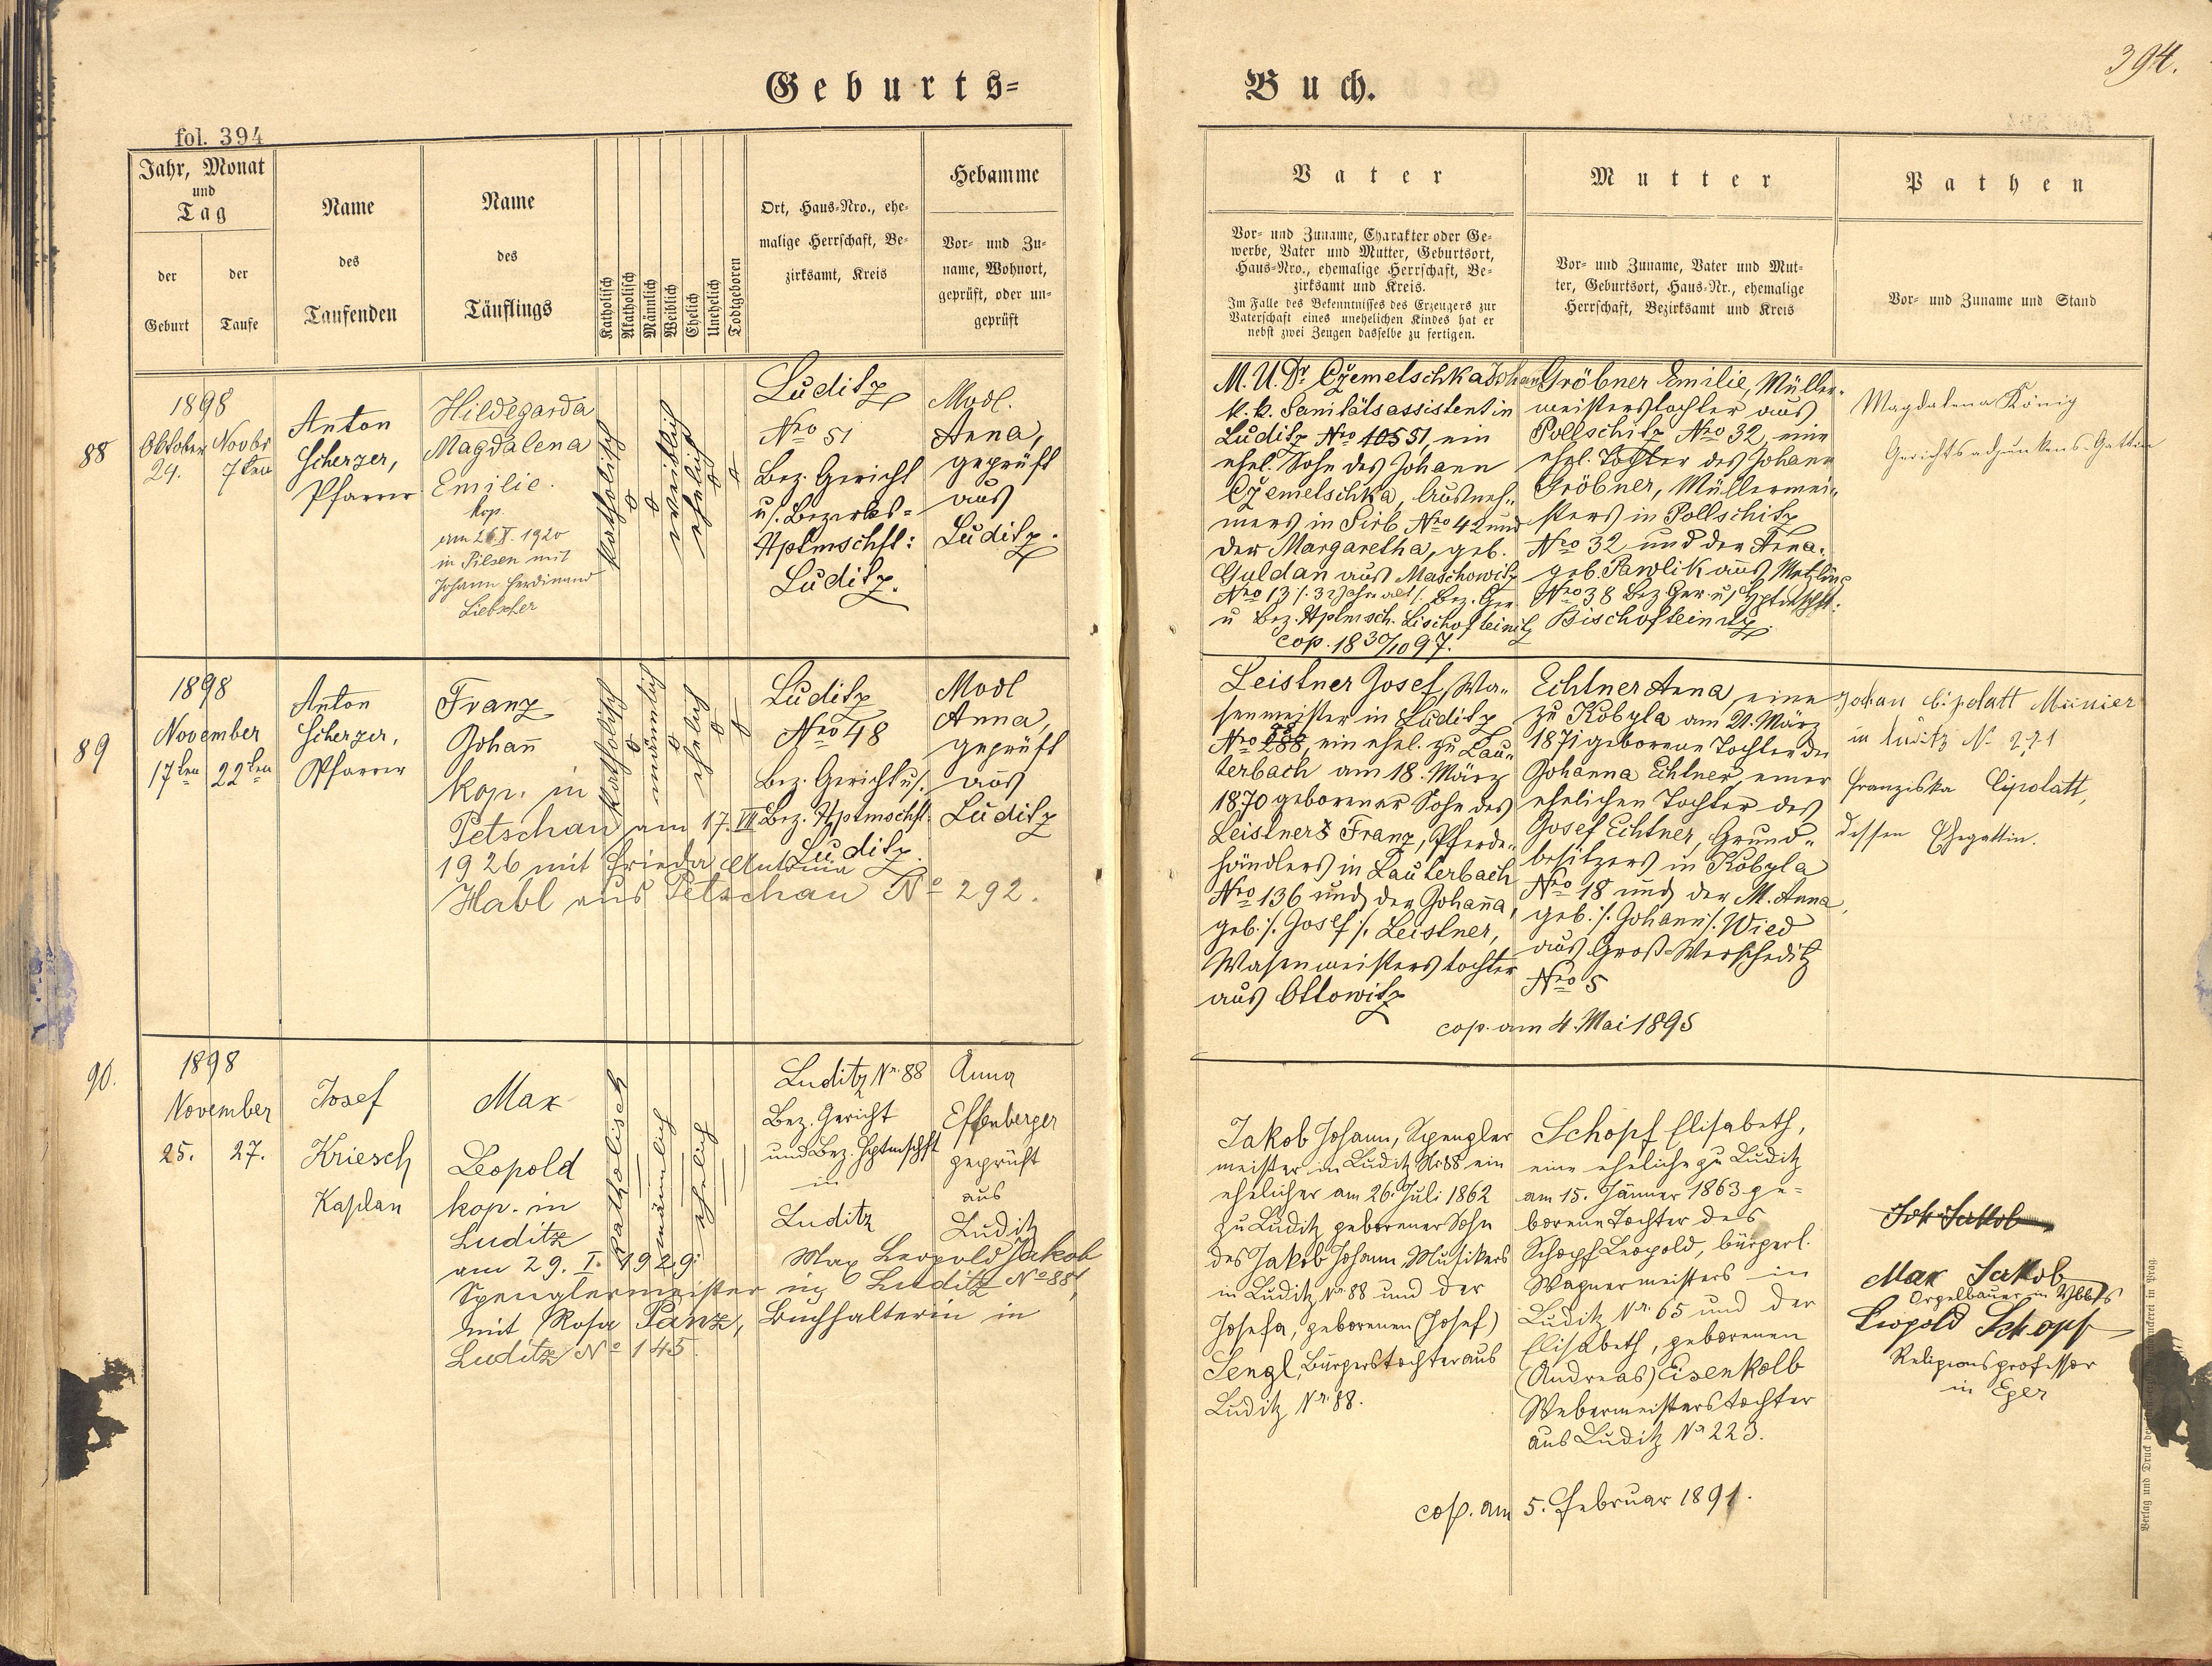 394.
Geburts=
Buch.
fol. 394
Jahr, Monat
und
Tag
der
Geburt
der
Taufe
Name
des
Taufenden
Name
des
Täuflings
Katholisch
Akatholisch
Männlich
Weiblich
Ehelich
Unehelich
Todtgeboren
Ort, Haus-Nro., ehe-
malige Herrschaft, Be-
zirksamt, Kreis
Hebamme
Vor- und Zu-
name, Wohnort,
geprüft, oder un-
geprüft
Vater
Vor- und Zuname, Charakter oder Ge-
werbe, Vater und Mutter, Geburtsort,
Haus-Nro., ehemalige Herrschaft, Be-
zirksamt und Kreis.
Im Falle des Bekenntnisses des Erzeugers zur
Vaterschaft eines unehelichen Kindes hat er
nebst zwei Zeugen dasselbe zu fertigen.
Mutter
Vor- und Zuname, Vater und Mut-
ter, Geburtsort, Haus-Nr., ehemalige
Herrschaft, Bezirksamt und Kreis
Pathen
Vor- und Zuname und Stand
88
1898
Oktober Novbr
24. 7ten
Anton
Scherzer,
Pfarrer
Hildegarda
Magdalena
Emilie.
kop.
in Pilsen mit
Johann Ferdinand
Liebscher
katholisch
weiblich
ehelich
Luditz
Nro 51
Bez. Gericht
u/. Bezirks=
Hptmschft:
Luditz.
Modl.
Anna,
geprüft
aus
Luditz.
M.U.Dr Czemetschka Johan
k.k. Sanitätsassistent in
Luditz Nro 10551, ein
ehel. Sohn des Johann
Czemetschka, Ausneh-
mers in Sirb Nro 42 und
der Margaretha, geb.
Guldan aus Maschowitz
Nro 13 /. 32 Jahre alt /. Bez. Ger.
u Bez. Hptmsch. Bischofteinitz
cop. 18 30/10 97.
Gröbner Emilie, Müller-
meisterstochter aus
Pollschitz Nro 32, eine
ehel. Tochter des Johann
Gröbner, Müllermei-
sters in Pollschitz
Nro 32 und der Anna,
geb. Pawlik aus Metzling
Nro 38 Bez. Ger. u/ Hptmschft:
Bischofteinitz.
Magdalena König
Gerichtsadjunktens-Gattin
89
1898
November
17ten 22ten
Anton
Scherzer,
Pfarrer
Franz
Johann
kop. in
Petschau am 17. VII
1926 mit Frieda Antonia
Habl aus Petschau No 292.
katholisch
männlich
ehelich
Luditz
Nro 48
Bez. Gericht u/.
Bez. Hptmschft:
Luditz.
Modl
Anna,
geprüft
aus
Luditz
Leistner Josef, Wa-
senmeister in Luditz
Nro 288, ein ehel. zu Lau-
terbach am 18. März
1870 geborener Sohn des
Leistners Franz, Pferde-
händlers in Lauterbach
Nro 136 und der Johanna,
geb. /. Josef /. Leistner,
Wasenmeisterstochter
aus Ottowitz
Echtner Anna, eine
zu Kobyla am 21. März
1871 geborene Tochter der
Johanna Echtner, einer
ehelichen Tochter des
Josef Echtner, Grund-
besitzers in Kobyla
Nro 18 und der M. Anna,
geb. /. Johann /. Wied
aus Groß-Werscheditz
Nro 5
cop. am 4. Mai 1895
Johan Cipolatt
in Luditz N. 271
Franziska Cipolatt,
dessen Ehegattin.
90.
1898
November
25. 27.
Josef
Kriesch
Kaplan
Max
Leopold
kop. in
Luditz
am 29. I. 1929: Max Leopold Jakob
Spenglermeister in Luditz No 88,
mit Rosa Panz, Buchhalterin in
Luditz No 145.
katholisch
männlich
ehelich
Luditz Nr. 88
Bez. Gericht
und Bez. Hptmschft
in
Luditz
Anna
Effenberger
geprüft
aus
Luditz
Jakob Johann, Spengler
meister in Luditz Nr 88 ein
ehelicher am 26. Juli 1862
zu Luditz geborener Sohn
des Jakob Johann, Musikers
in Luditz Nr. 88 und der
Josefa, geborenen (Josef)
Sengl, Bürgerstochter aus
Luditz Nr. 88.
Schopf Elisabeth,
eine eheliche zu Luditz
am 15. Jänner 1863 ge=
borene Tochter des
Schopf Leopold, bürgerl.
Wagnermeisters in
Luditz Nr. 65 und der
Elisabeth, geborenen
(Andreas) Eisenkolb
Webermeisterstochter
aus Luditz Nr 223.
cop. am 5. Februar 1891.
Joh Jakob
Max Jakob
Orgelbauer in Ybbs
Leopold Schopf
Religionsprofessor
in Eger
Verlag und Druck
in Prag